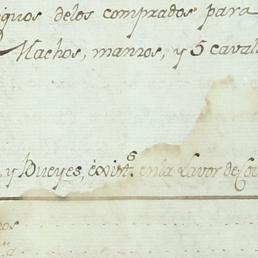 quos delos comprados para
Machos, mansos, y 5 cavall
y Bueyes, exist.s en la Lavor de Co